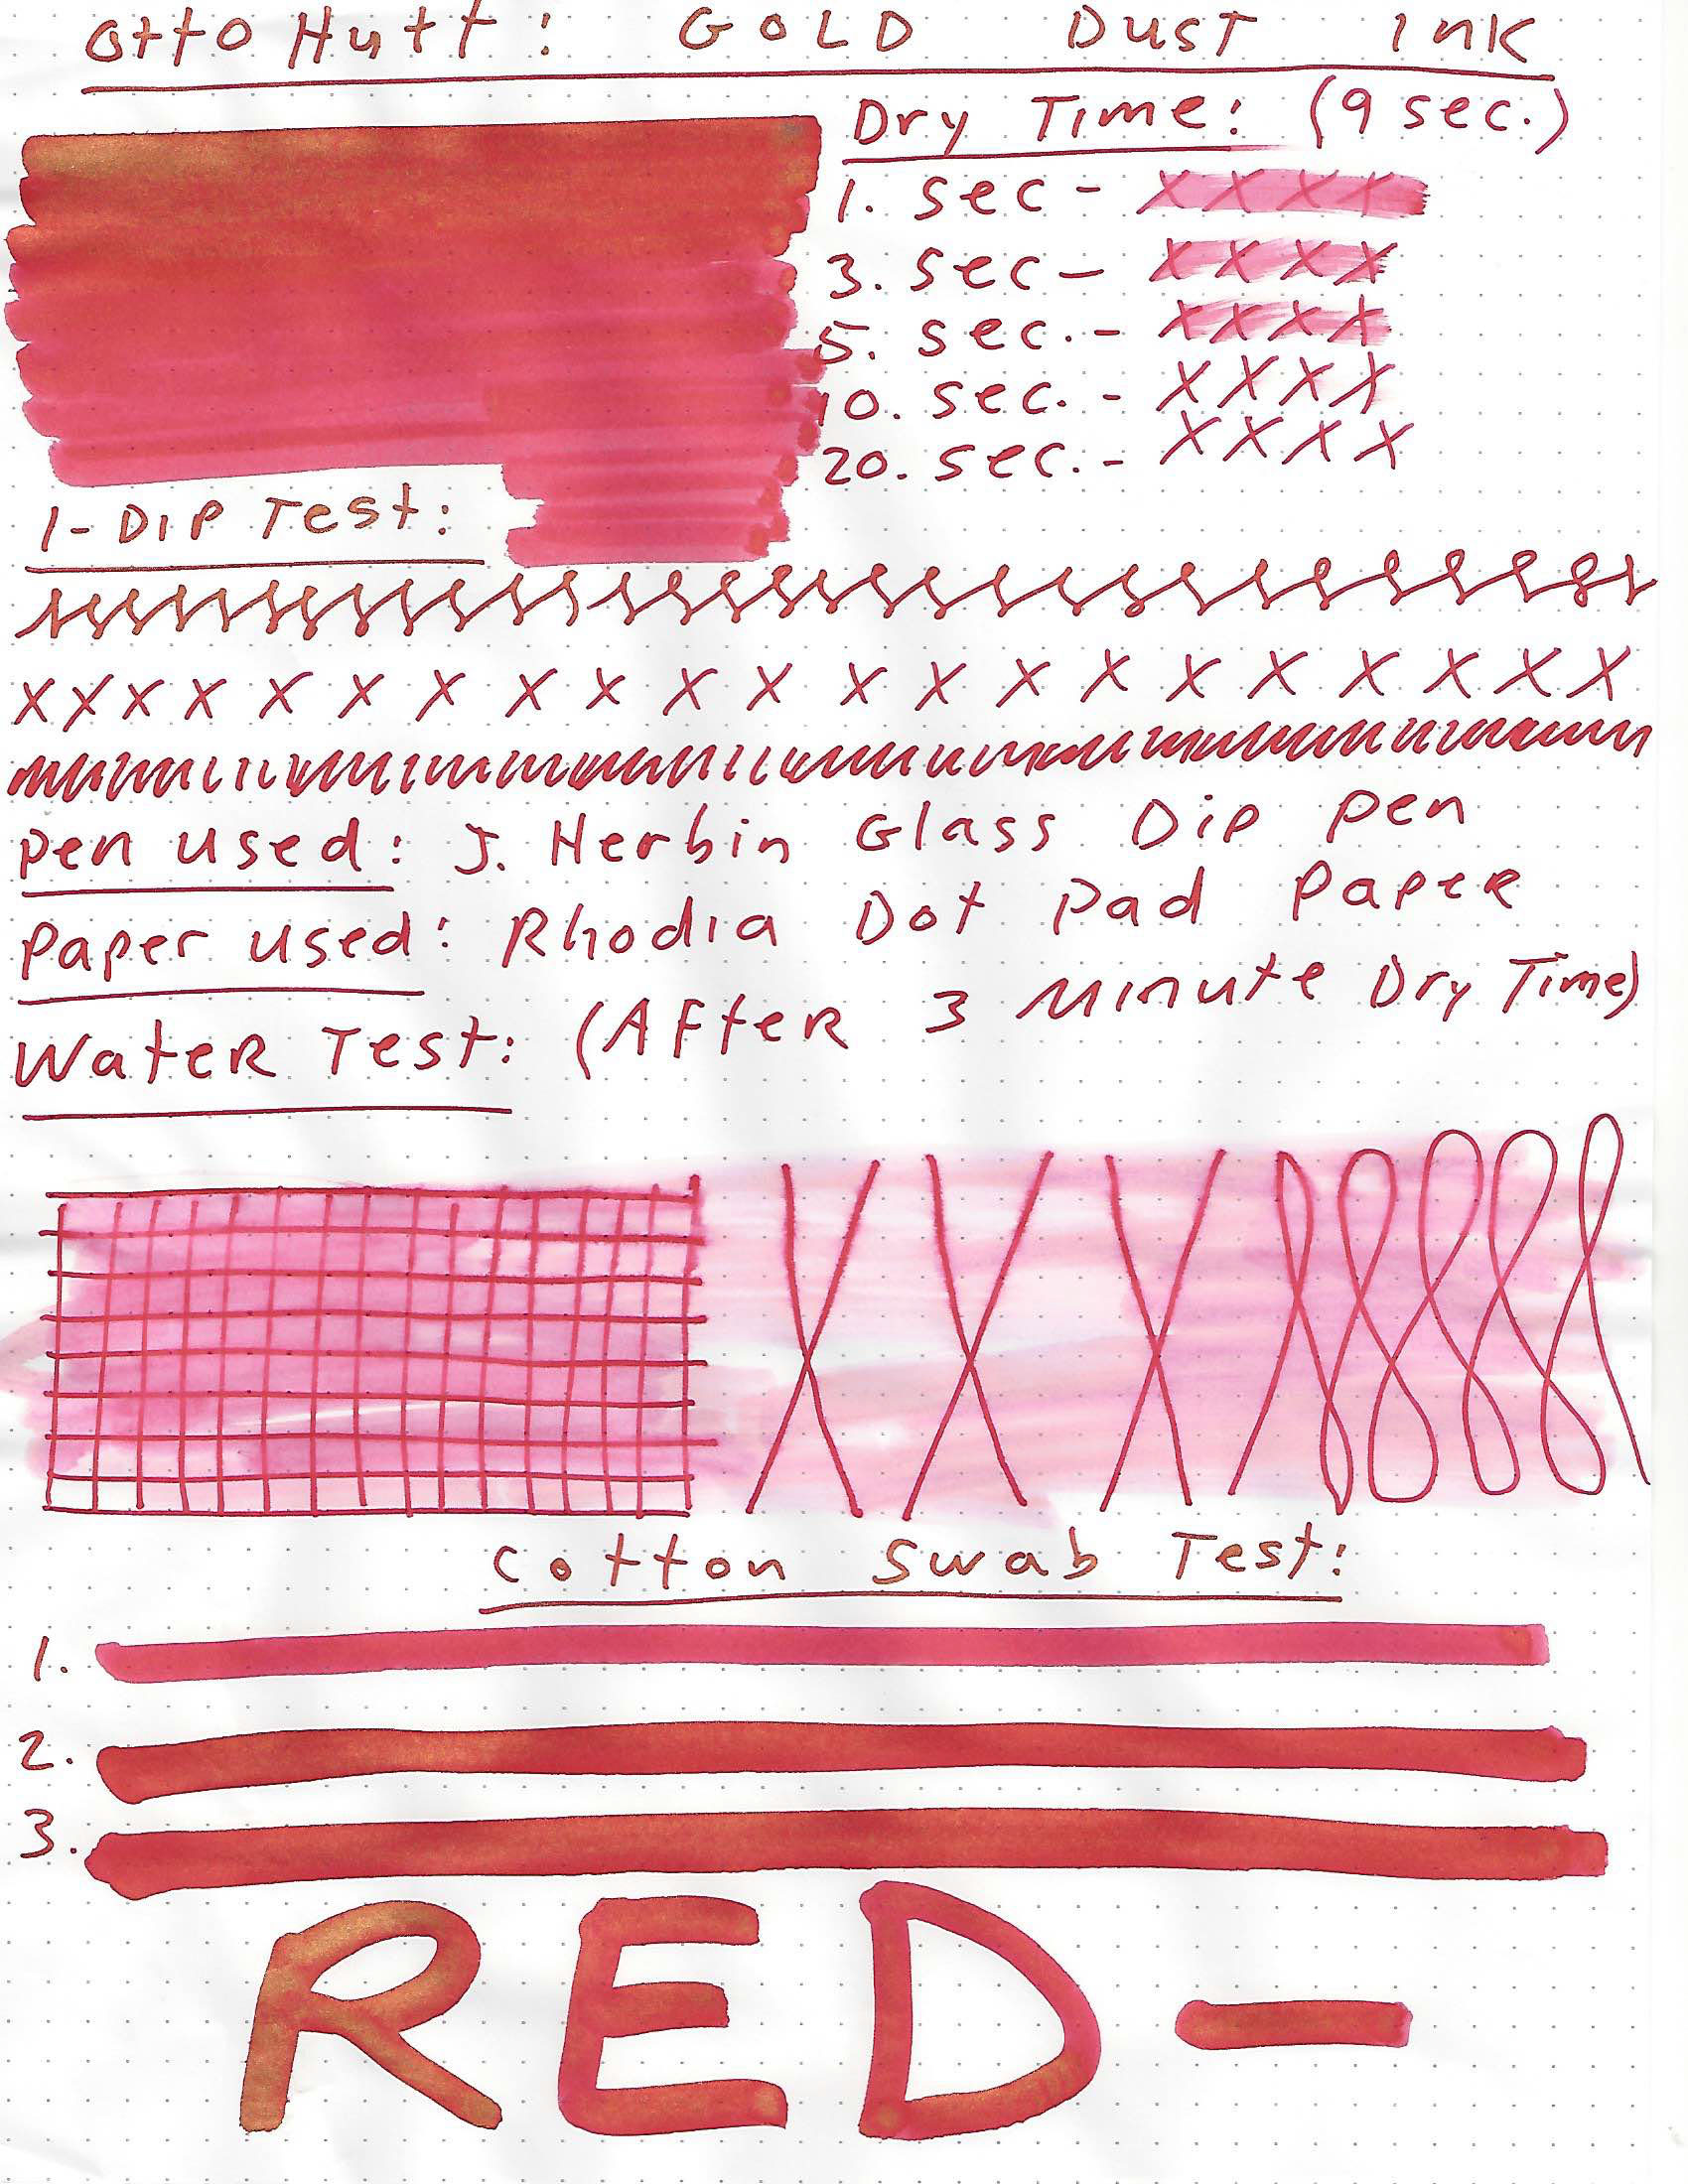 Otto Hutt: GOLD DUST Ink
Dry Time: (9 sec.)
1. sec - x x x x
3. sec - x x x x
5. sec. - x x x x
10. sec. - x x x x
20. sec. - x x x x
1-Dip Test:
x x x x x x x x x x x x x x x x x x x x x
Pen used: J. Herbin Glass Dip Pen
Paper used: Rhodia Dot Pad Paper
Water Test: (After 3 Minute Dry Time)
Cotton Swab Test:
1.
2.
3.
RED-